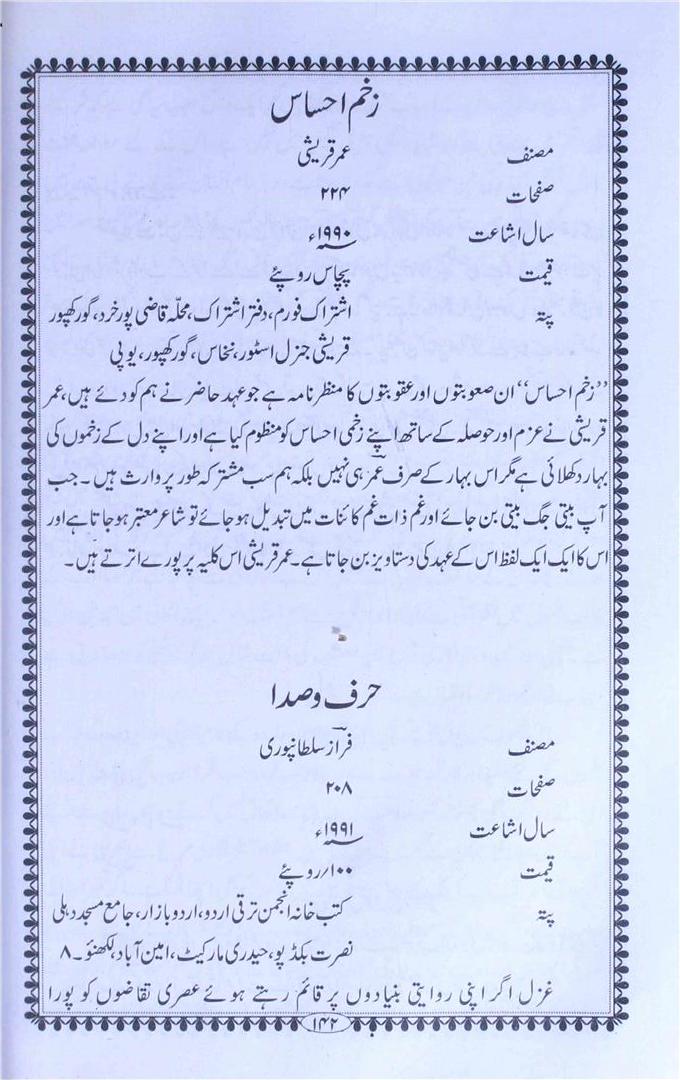 زخم احساس
مصنف عمر قریشی
صفحات ۲۲۴
سال اشاعت ۱۹۹۰ء
قیمت پچاس روپئے
پتہ اشتراک فورم، دفتر اشتراک، محلّہ قاضی پور خرد، گورکھپور
قریشی جنرل اسٹور، نخاس، گورکھپور، یوپی
”زخم احساس“ ان صعوبتوں اور عقوبتوں کا منظر نامہ ہے جو عہد حاضر نے ہم کو دئے ہیں، عمر
قریشی نے عزم اور حوصلہ کے ساتھ اپنے زخمی احساس کو منظوم کیا ہے اور اپنے دل کے زخموں کی
بہار دکھلائی ہے مگر اس بہار کے صرف عمرؔ ہی نہیں بلکہ ہم سب مشترکہ طور پر وارث ہیں۔ جب
آپ بیتی جگ بیتی بن جائے اور غم ذات غم کائنات میں تبدیل ہو جائے تو شاعر معتبر ہو جاتا ہے اور
اس کا ایک ایک لفظ اس کے عہد کی دستاویز بن جاتا ہے۔ عمر قریشی اس کلیہ پر پورے اترتے ہیں۔
حرف و صدا
مصنف فرازؔ سلطانپوری
صفحات ۲۰۸
سال اشاعت ۱۹۹۱ء
قیمت ۱۰۰/روپئے
پتہ کتب خانہ انجمن ترقی اردو، اردو بازار، جامع مسجد دہلی
نصرت بکڈپو، حیدری مارکیٹ، امین آباد، لکھنؤ۔ ۸
غزل اگر اپنی روایتی بنیادوں پر قائم رہتے ہوئے عصری تقاضوں کو پورا
۱۴۲